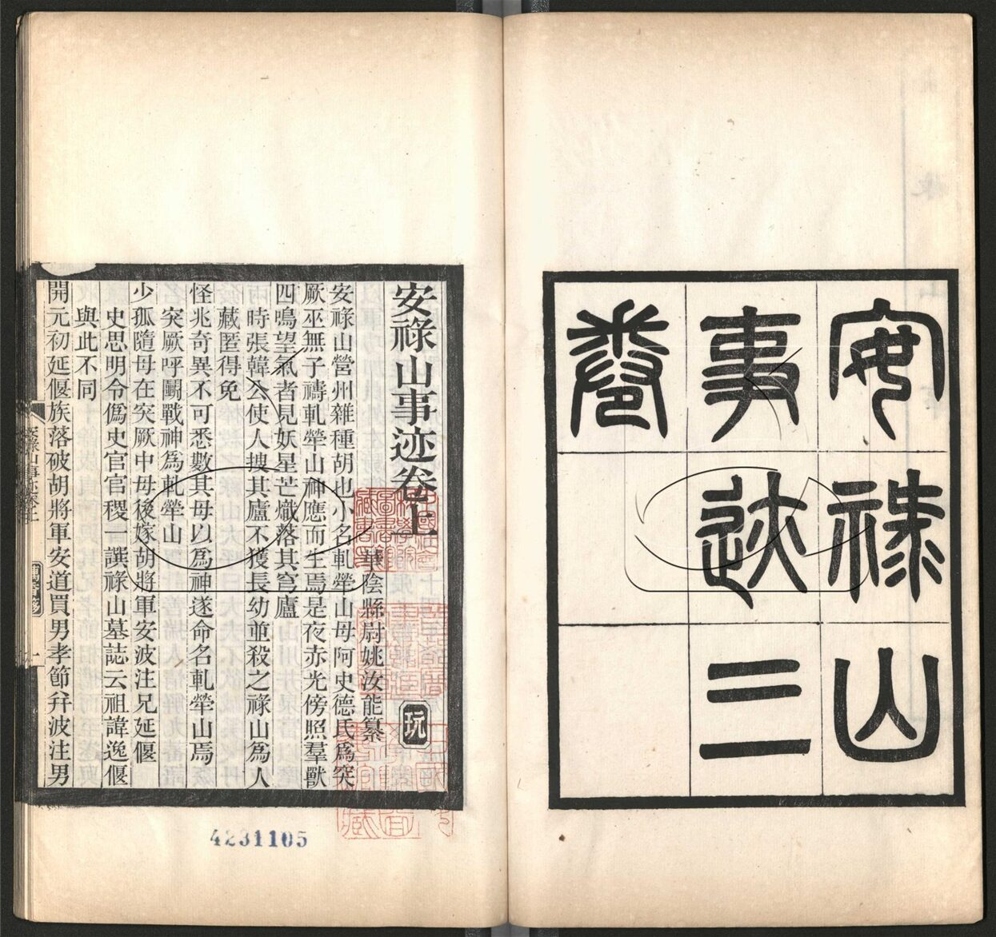 安祿山
事迹三
卷
安祿山事迹卷上
華陰縣尉姚汝能纂
玩
安祿山營州雜種胡也小名軋犖山母阿史德氏爲突
厥巫無子禱軋犖山神應而生焉是夜赤光傍照羣獸
四鳴望氣者見妖星芒熾落其穹廬
時張韓公使人搜其廬不獲長幼並殺之祿山爲人
藏匿得免
怪兆奇異不可悉數其母以爲神遂命名軋犖山焉
突厥呼鬭戰神爲軋犖山
少孤隨母在突厥中母後嫁胡將軍安波注兄延偃
史思明令僞史官官稷一譔祿山墓誌云祖諱逸偃
與此不同
開元初延偃族落破胡將軍安道買男孝節幷波注男
安祿山事迹卷上
一
4231105